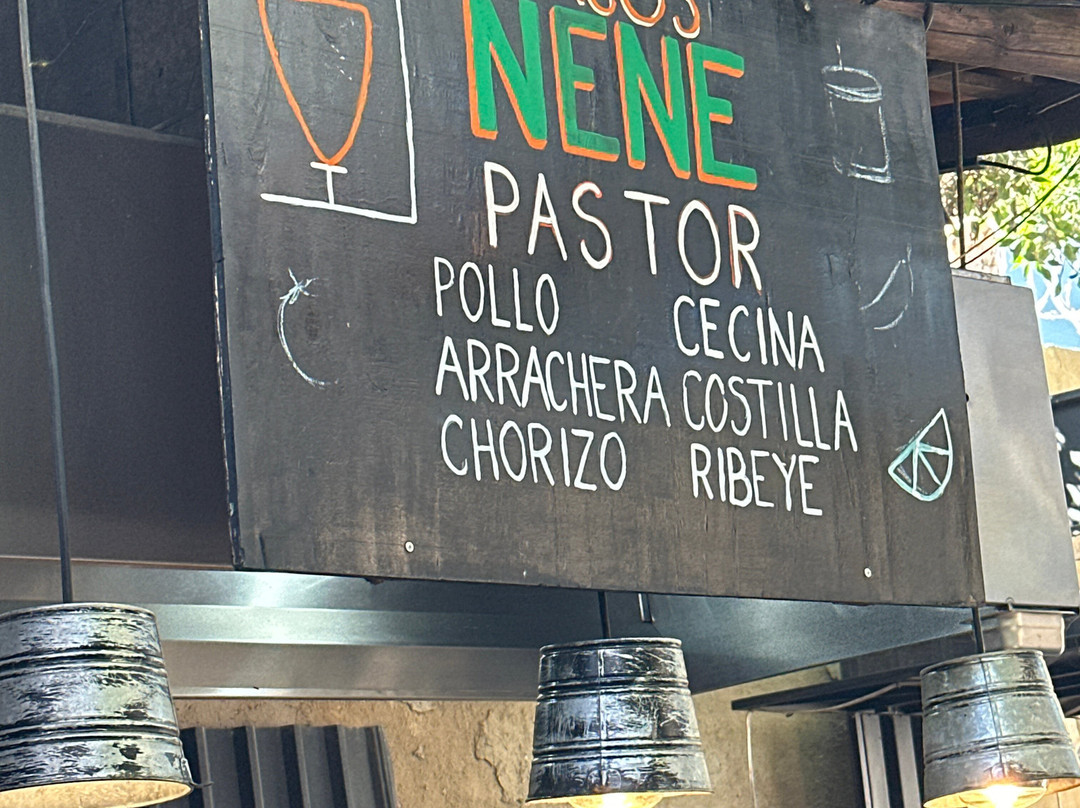 NENE
PASTOR
POLLO
ARRACHERA
CHORIZO
CECINA
COSTILLA
RIBEYE